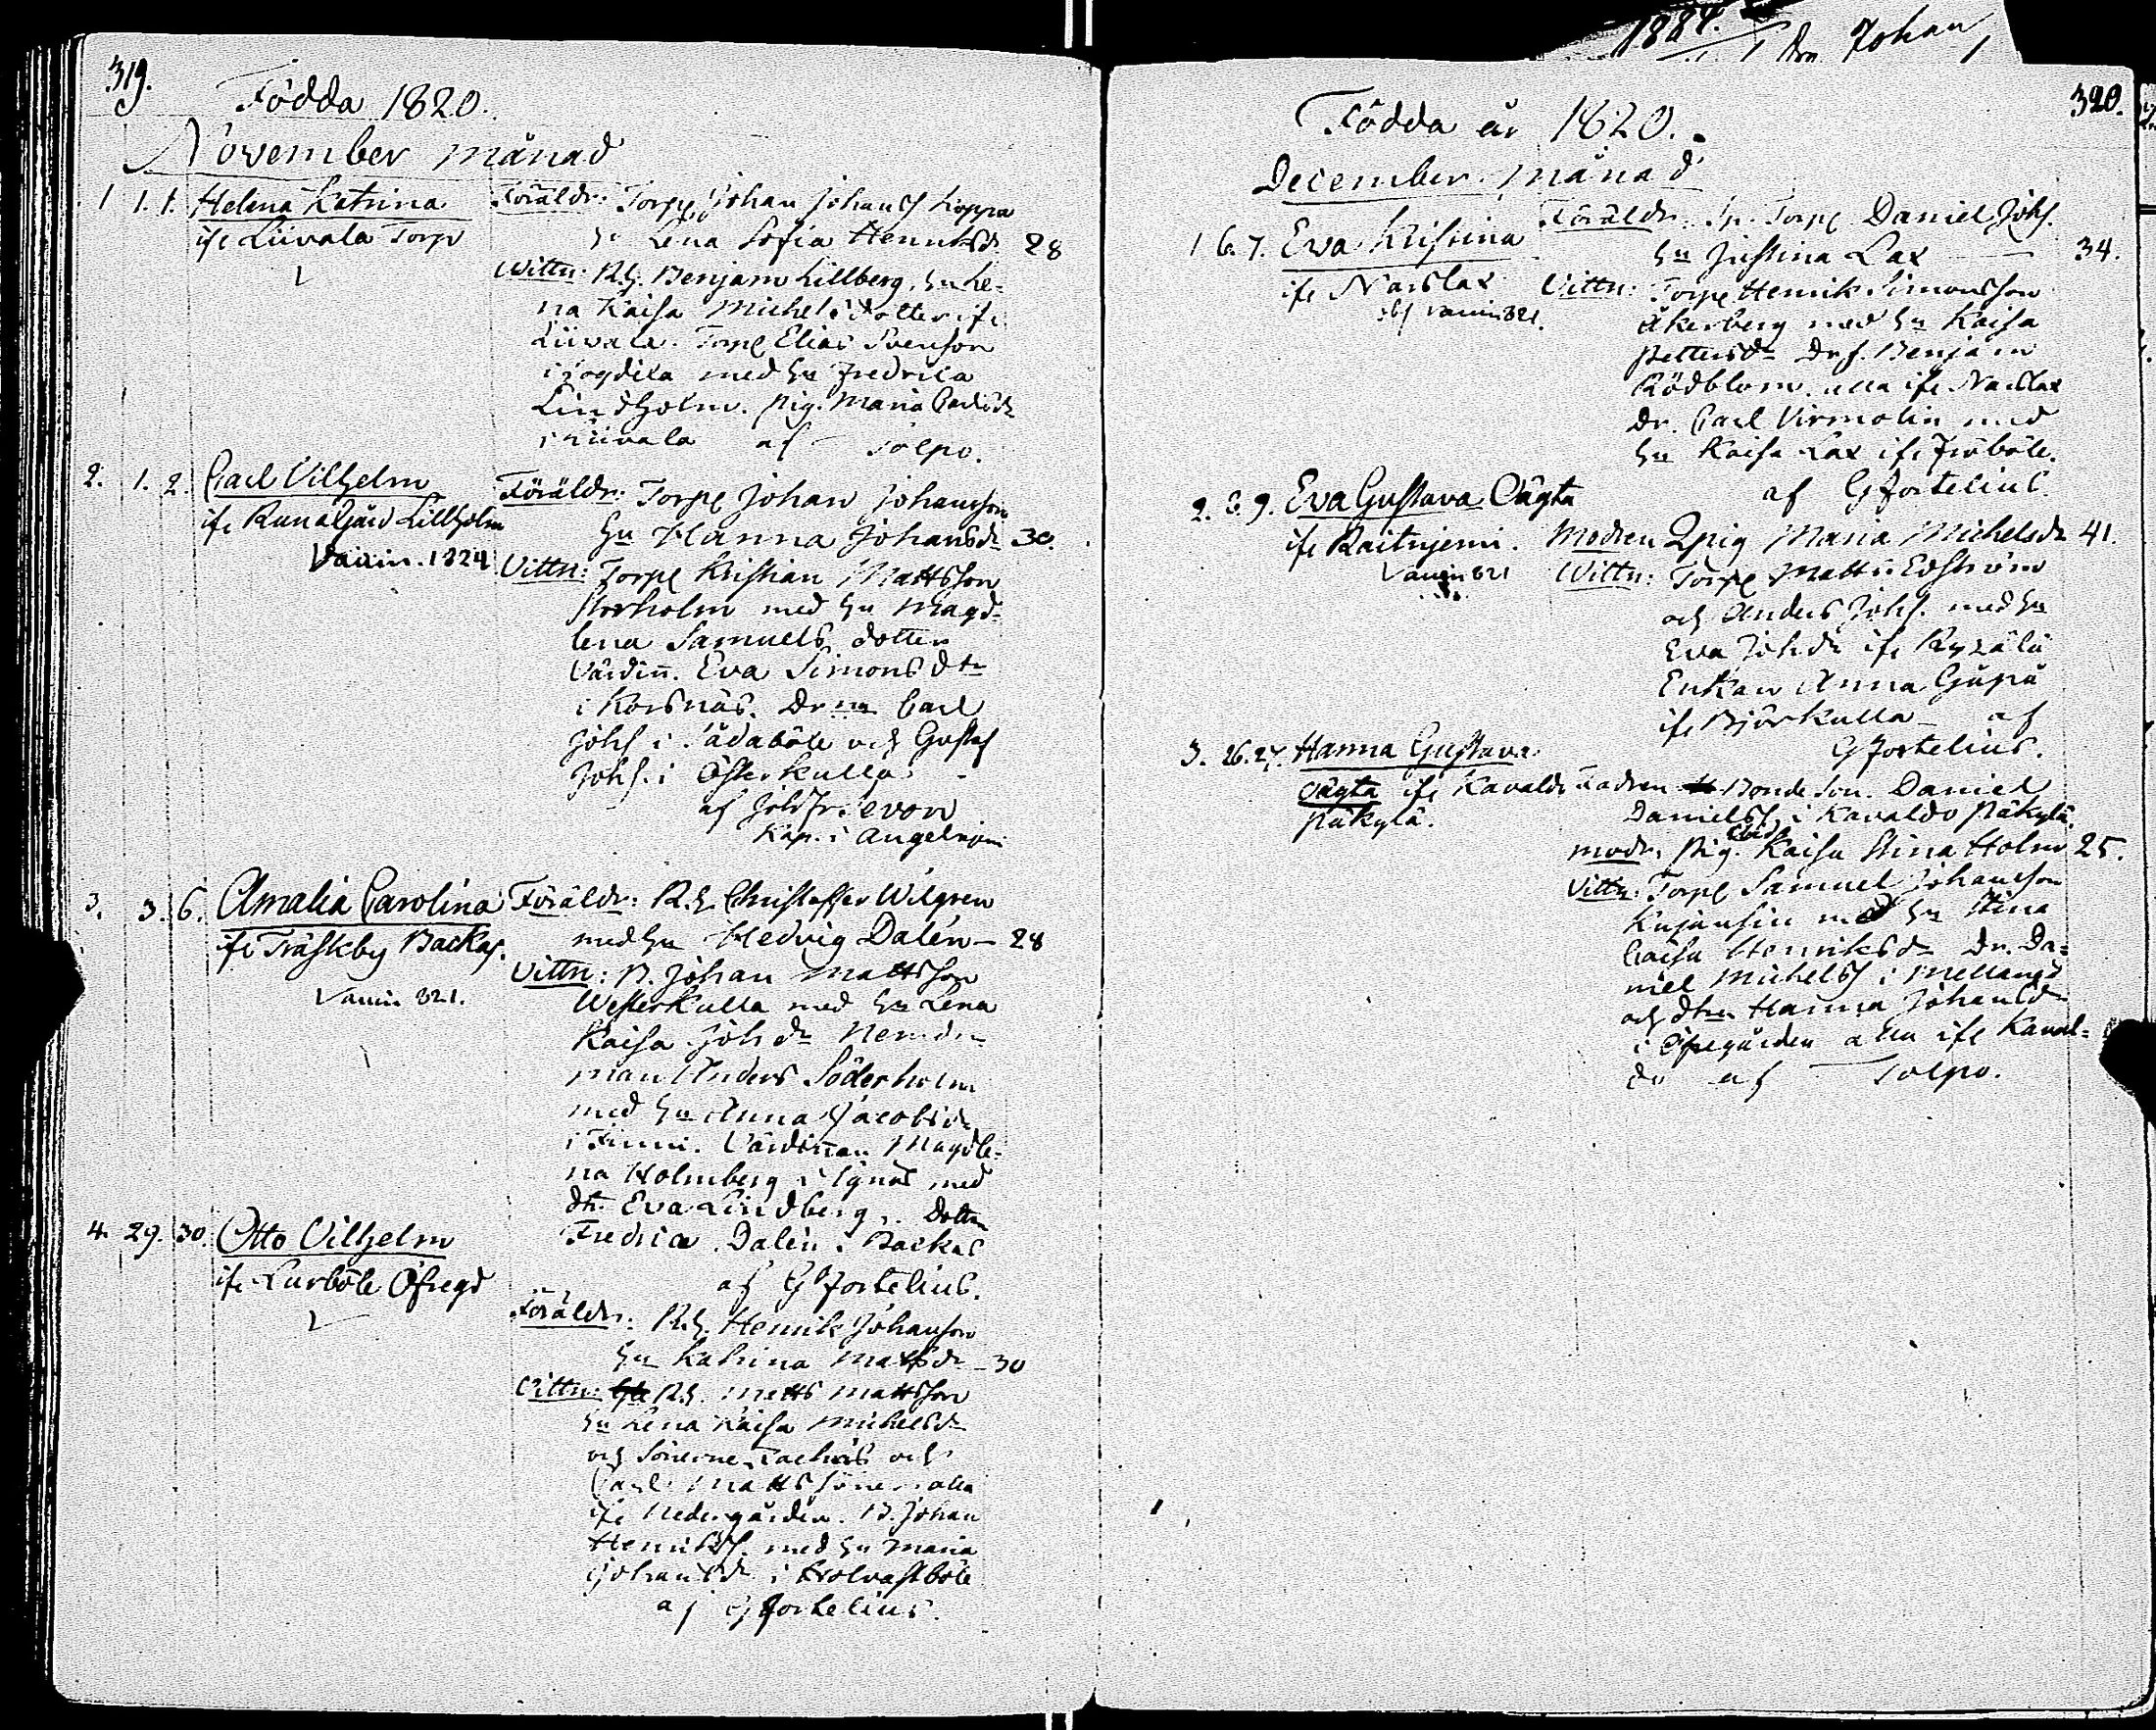 319.
Födda 1820.
November månad
1 1. 1. Helena Katrina
ifr. Liivala Torp
Föräldr: Torp. Johan Johanss Koppra
hu Lena Sofia Henriksdr 28
Wittn: R.h. Benjam Lillberg, hu He-
na Kaisa Michelsdotter ifr.
Liivala. Torp Elias Svenson
med hu Fredrica
Lindholm. Pig. Maria Carlsdr
i Liivala af Tolpo.
2. 1. 2. Carl Vilhelm
ifr Runagård Lillholm
Vaccin. 1824
Föräldr: Torp Johan Johansson
hu Hanna Johansdr 30.
Vittn: Torp Kristian Mattsson
Storholm med hu Magd-
lena Samuels dotter
Värdin. Eva Simonsdtr
i Korsnäs. Drna Carl
Johs i Sådaböle och Gustaf
Johs. i Österkulla
af
Kap. i Angelniemi
3. 5. 6. Amalia Carolina
ifr Träskby Backas.
Vaccin 821.
Föräldr: R.h. Christoffer Wilgren
med hu Hedvig Dalen – 28
Vittn: B. Johan Mattsson
Westerkulla med hu Lena
Kaisa Johdr Nemde-
man Anders Söderholm
med hu Anna Jacobsdr
i Finni. Värdinan Magdle-
na Holmberg i med
dtr. Eva Lindberg. Dottn
Fredrica Dalen. Backas
af G Fortelius.
4. 29. 30. Otto Vilhelm
ifr Lurböle Öfregd
Föräldr: R.h. Henrik Johanson
hu Katrina Mattsdr – 30
Vittn: R.h. Matts Mattsson
hu Lena Kaisa Michelsdr
och Sönerne Zachris och
Carl Matts söner alla
ifr Nedergården. B. Johan
Henrikss. med hu Maria
Johansdr i Holvastböle
af G Fortelius.
1884.
Dr. Johan
320.
Födda år 1820.
December månad
1 6. 7. Eva Kristina
ifr Narslax
vaccin 821.
Föräldr. Sp. Torp Daniel Johs.
hu Justina Lax 34.
Vittn: Torp Henrik Simonsson
Åkerberg med hu Kaisa
Pettersdr Dr. s. Benjam
Rödblom. alla ifr Narslax
Dr. Carl Virmolin med
hu Kaisa Lax ifr Frisböle.
af G Fortelius.
2. 8. 9. Eva Gustava Oägta
ifr Raitniemi.
Vaccin 821
Modren Qpig Maria Michelsdr 41.
Wittn: Torp Matts Edström
och Anders Johs. med hu
Eva Johdr ifr Ryzälä
Enkan Anna Gåpå
ifr Björkulla – af
G Fortelius.
3. 26. 27. Hanna Gustava
Oägta ifr Kavaldo
Päkylä.
Fadren Bonde Son. Daniel
Danielss i Kavaldo Päkylä.
modr. Pig. Kaisa Stina Holm 25.
Vittn: Torp Samuel Johansson
Kujansin med hu Stina
Caisa Henriksdr Dr. Da-
niel Michelss i Mellangd
och dtren Hanna Johansdr
i Öfregården alla ifr Kaval-
do af Tolpo.